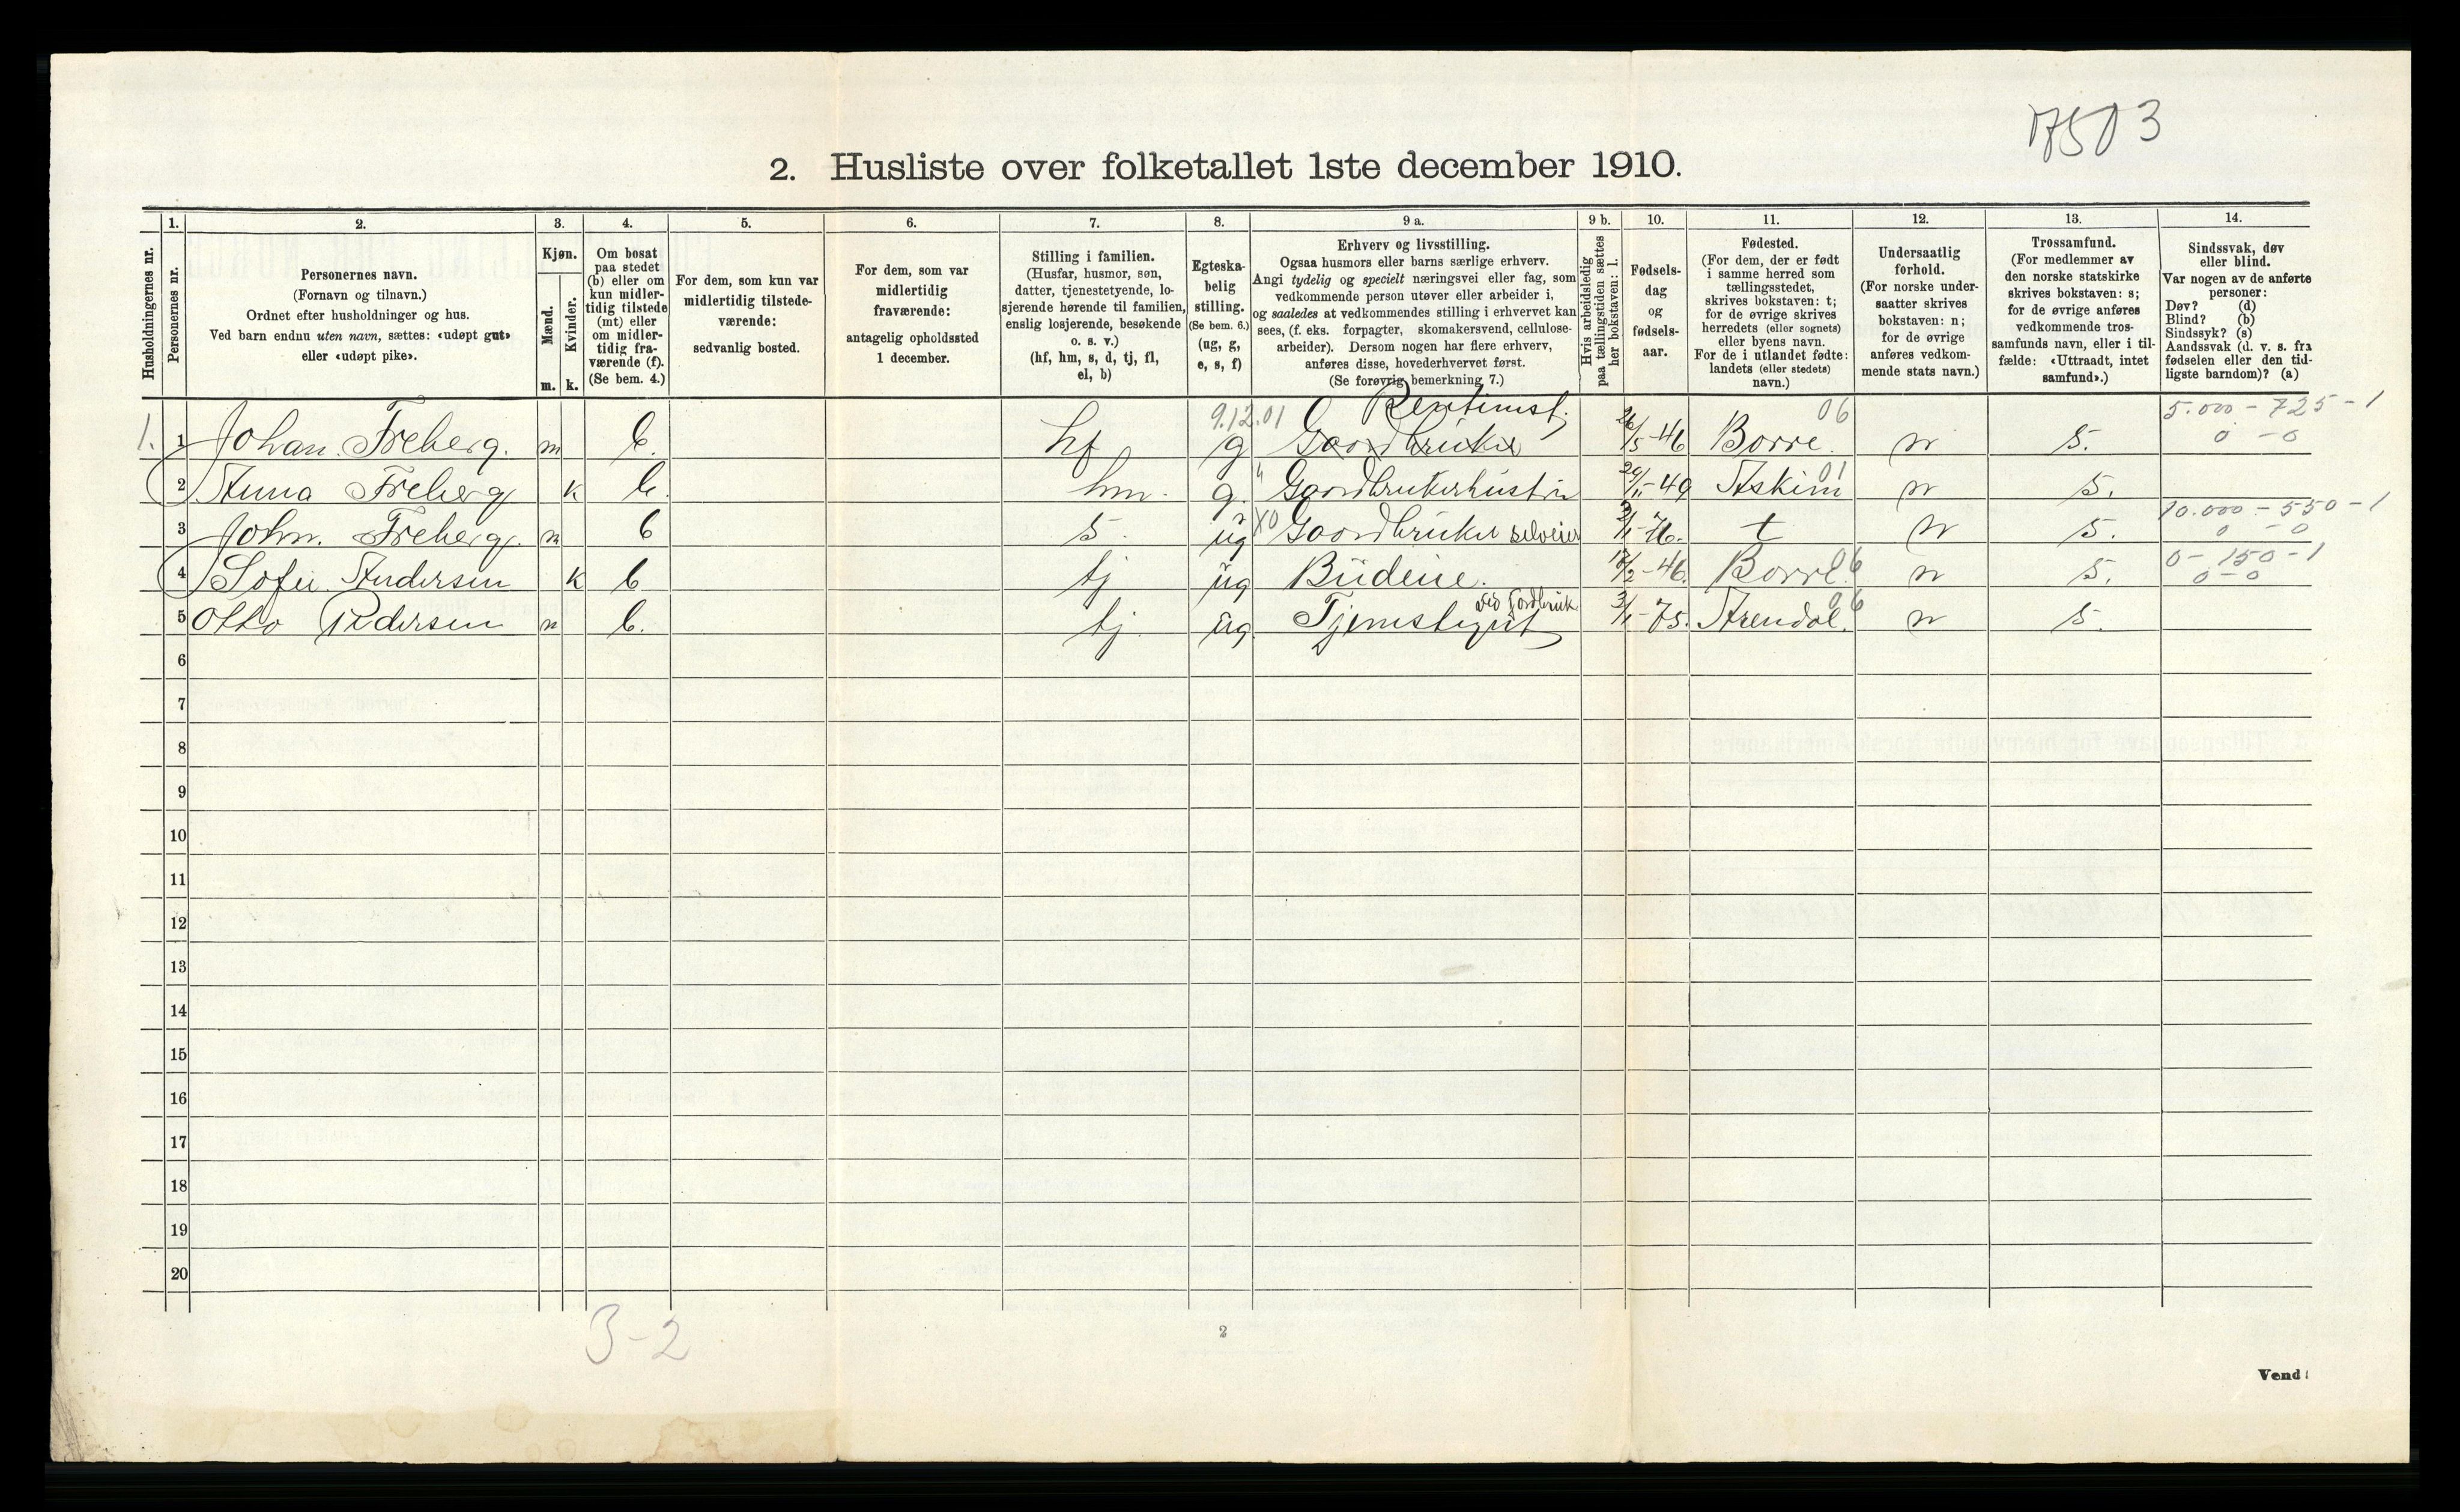 17503
2. Husliste over folketallet 1ste december 1910.
Husholdningernes nr.
1. Personernes nr.
2. Personernes navn. (Fornavn og tilnavn.) Ordnet efter husholdninger og hus. Ved barn endnu uten navn, sættes: «udøpt gut» eller «udøpt pike».
3. Kjøn. Mænd. m. Kvinder. k.
4. Om bosat paa stedet (b) eller om kun midlertidig tilstede (mt) eller om midlertidig fraværende (f). (Se bem. 4.)
5. For dem, som kun var midlertidig tilstedeværende: sedvanlig bosted.
6. For dem, som var midlertidig fraværende: antagelig opholdssted 1 december.
7. Stilling i familien. (Husfar, husmor, søn, datter, tjenestetyende, losjerende hørende til familien, enslig losjerende, besøkende o. s. v.) (hf, hm, s, d, tj, fl, el, b)
8. Egteskabelig stilling. (Se bem. 6.) (ug, g, e, s, f)
9 a. Erhverv og livsstilling. Ogsaa husmors eller barns særlige erhverv. Angi tydelig og specielt næringsvei eller fag, som vedkommende person utøver eller arbeider i, og saaledes at vedkommendes stilling i erhvervet kan sees, (f. eks. forpagter, skomakersvend, cellulosearbeider). Dersom nogen har flere erhverv, anføres disse, hovederhvervet først. (Se forøvrig bemerkning 7.)
9 b. Hvis arbeidsledig paa tællingstiden sættes her bokstaven: l.
10. Fødselsdag og fødselsaar.
11. Fødested. (For dem, der er født i samme herred som tællingsstedet, skrives bokstaven: t; for de øvrige skrives herredets (eller sognets) eller byens navn. For de i utlandet fødte: landets (eller stedets) navn.)
12. Undersaatlig forhold. (For norske undersaatter skrives bokstaven: n; for de øvrige anføres vedkommende stats navn.)
13. Trossamfund. (For medlemmer av den norske statskirke skrives bokstaven: s; for de øvrige anføres vedkommende trossamfunds navn, eller i tilfælde: «Uttraadt, intet samfund».)
14. Sindssvak, døv eller blind. Var nogen av de anførte personer: Døv? (d) Blind? (b) Sindssyk? (s) Aandssvak (d. v. s. fra fødselen eller den tidligste barndom)? (a)
9.12.01 Rentenist. 06 5.000 - 725 - 1
1. 1 Johan Freberg. m b. hf g Gaardbruker 26/5-46 Borre. n s. 0 - 0
2 Anna Freberg k b. hm. g. " Gaardbrukerhustru 29/11-49 Askim 01 n s.
3 John. Freberg. m b s. ug X0 Gaardbruker selveier 2/1-76. t n s. 10.000 - 550 - 1 0 - 0
4 Sofie Andersen k b tj ug Budeie. 17/2-46. Borre. 06 n s. 0 - 150 - 1 0 - 0
5 Otto Pedersen m b. tj ug. Tjenstegut ved Jordbruk 3/1-75. Arendal. 06 n s.
6
7
8
9
10
11
12
13
14
15
16
17
18
19
20
3-2
2
Vend!